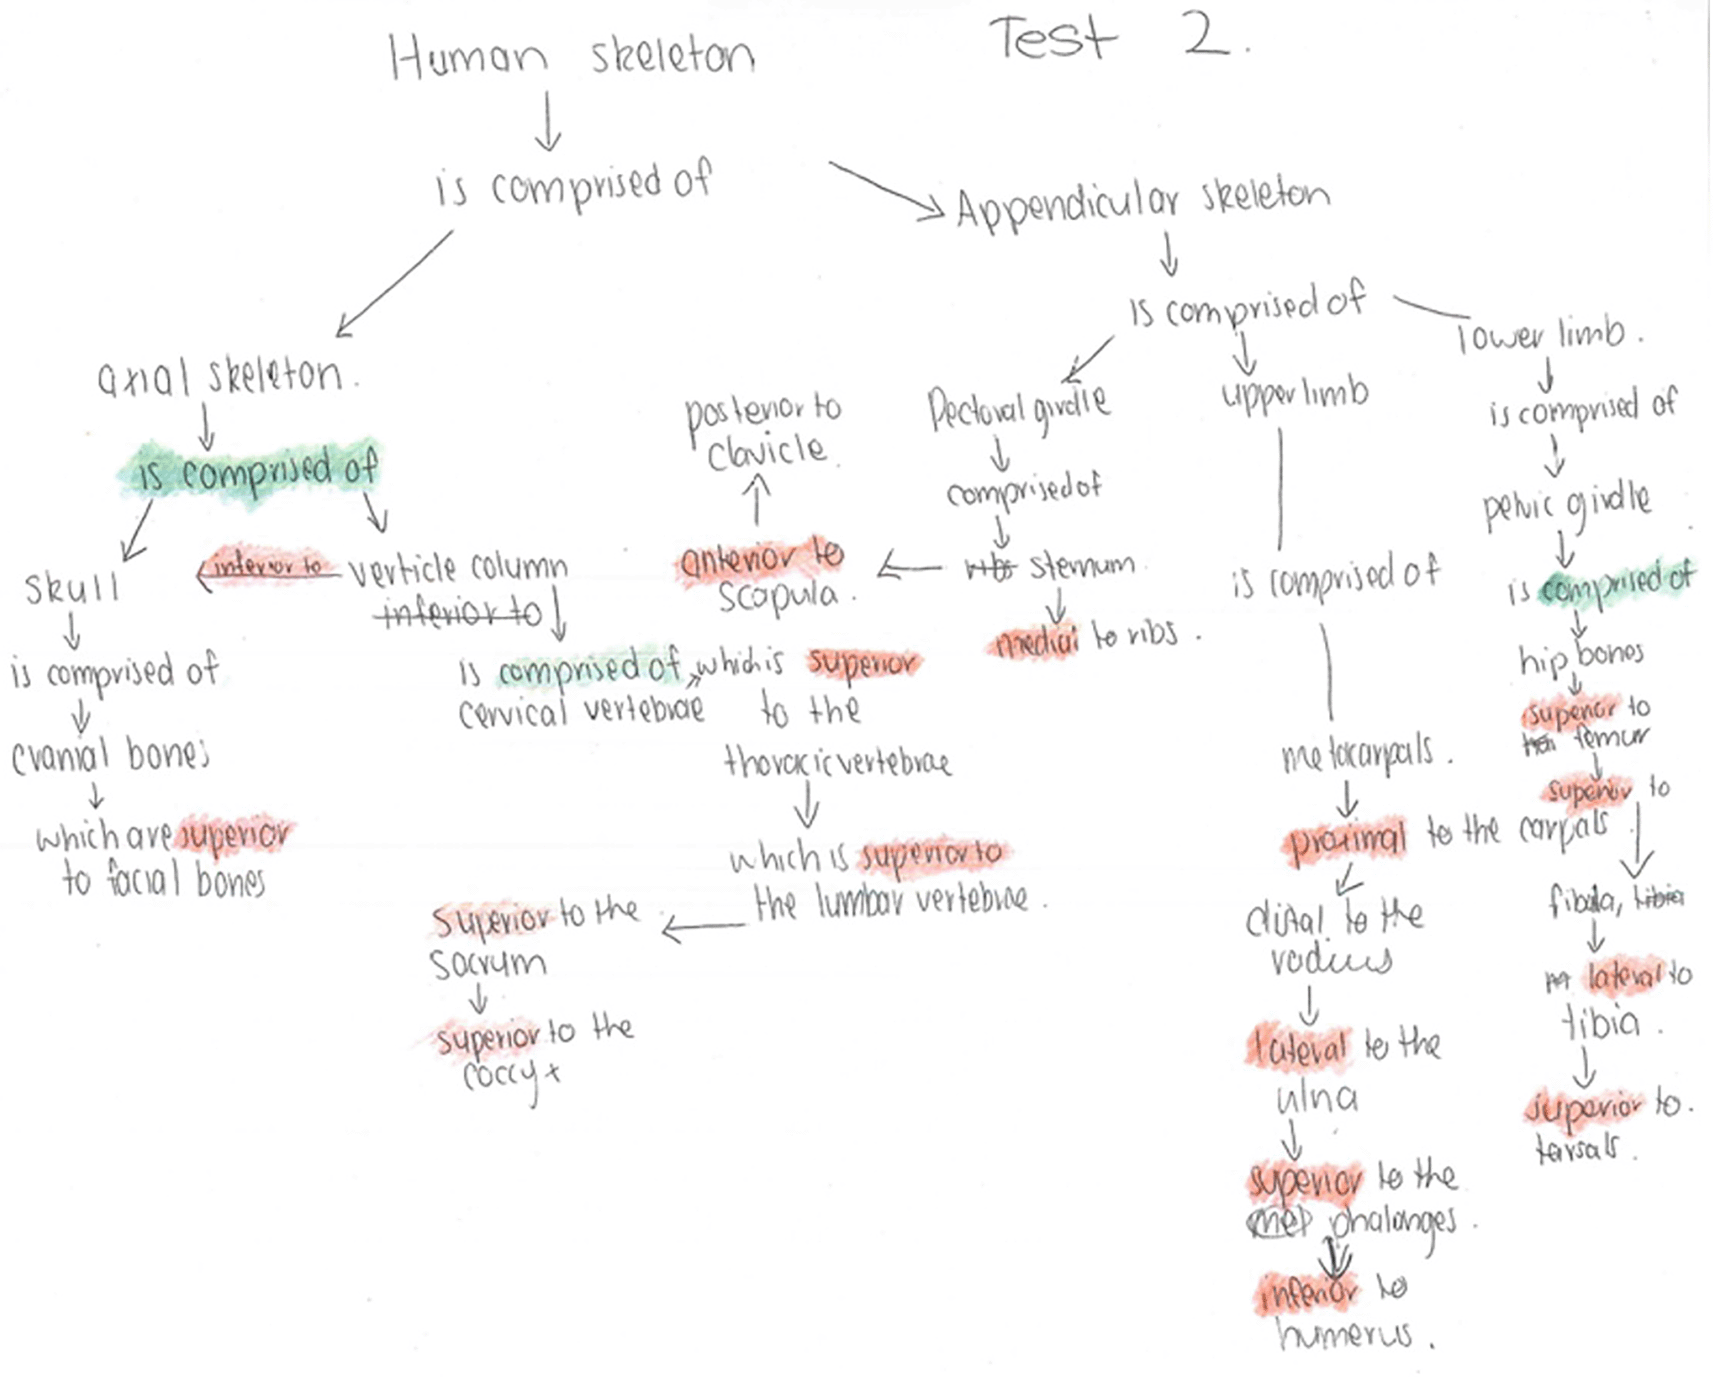 Human skeleton
Test 2.
is comprised of
Appendicular skeleton
is comprised of
lower limb.
axial skeleton.
is comprised of
skull
inferior to
verticle column
inferior to
is comprised of
cranial bones
which are superior
to facial bones
is comprised of, which is superior
cervical vertebrae to the
thoracic vertebrae
which is superior to
the lumbar vertebrae.
superior to the
sacrum
superior to the
coccyx
Pectoral girdle
comprised of
ribs sternum
medial to ribs.
anterior to
scapula.
posterior to
clavicle.
upper limb
is comprised of
metacarpals.
proximal to the carpals
distal to the
radius
lateral to the
ulna
superior to the
met phalanges.
inferior to
humerus.
is comprised of
pelvic girdle
is comprised of
hip bones
superior to
femur
superior to
fibula, tibia
lateral to
tibia.
superior to.
tarsals.